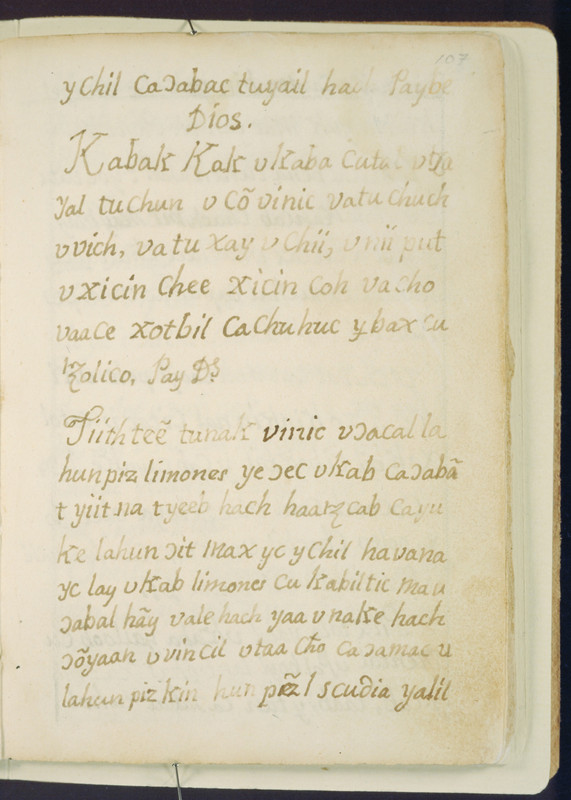 107
ychil caɔabac tuyail hach Paybe
Dios.
Kabak Kak v kaba cutal vtza
yal tu chun v cõ vinic vatu chuch
v vich, va tu xay v chii, v nii put
v xicin chee xicin coh vacho
vaace xotbil ca chuhuc y bax cu
tzolico, Pay Ds.
Tiith teẽ tunak vinic vɔacal la
hunpiz limones ye ɔec v kab caɔabã
t yiit na tyeeb hach haatz cab cayu
ke lahun ɔit max yc ychil havana
yc lay v kab limones cu kabiltic ma u
ɔabal hãy vale hach yaa v nake hach
ɔõyaan v vincil vtaa cħo caɔamac u
lahun piz kin hun pz̃ l scudia yalil